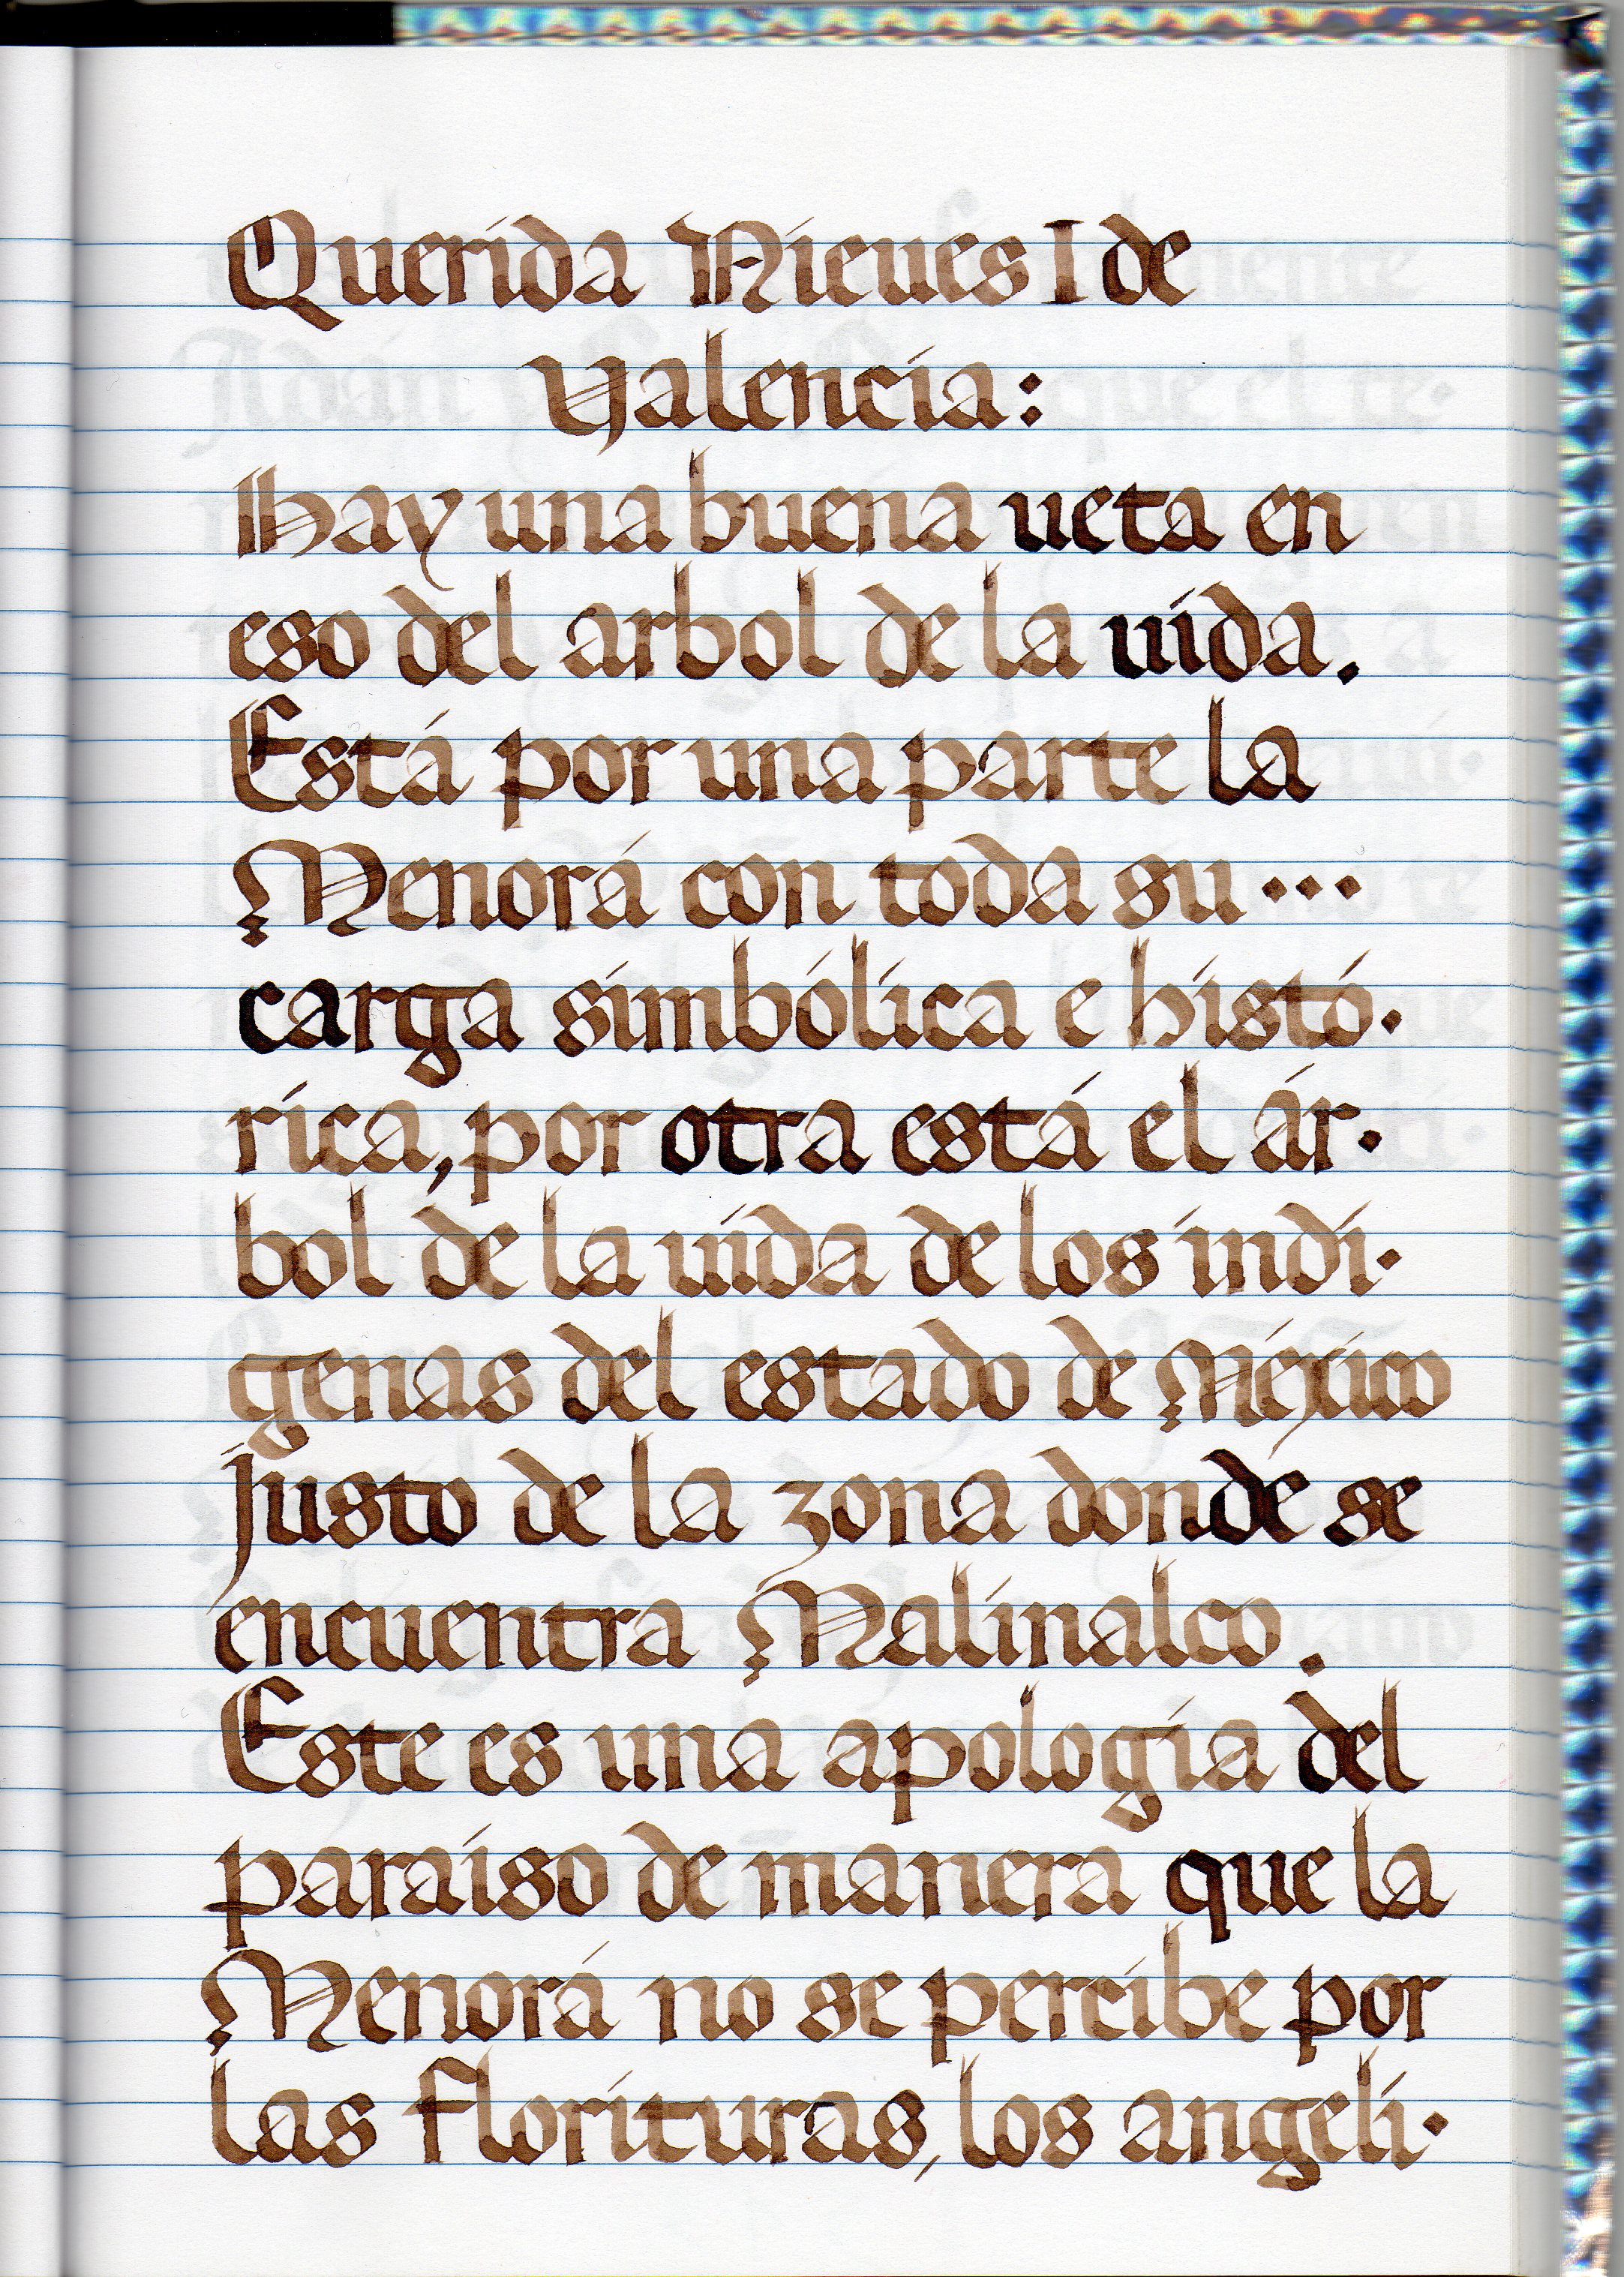 Querida Nieves I de
Valencia:
Hay una buena veta en
eso del arbol de la vida.
Está por una parte la
Menorá con toda su ...
carga simbólica e histó·
rica, por otra está el ár·
bol de la vida de los indí·
genas del estado de México
justo de la zona donde se
encuentra Malinalco.
Este es una apología del
paraíso de manera que la
Menorá no se percibe por
las florituras, los angeli·